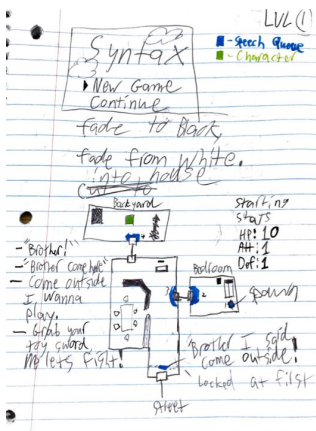 LVL (1)
- Speech Queue
- Character
Syntax
New Game
Continue
fade to Black,
fade from white.
into house
Backyard
Starting
Stats
HP: 10
Att: 1
Def: 1
- "Brother!"
- "Brother come here"
- Come outside
I wanna
play.
- Grab your
toy sword
lets fight!
Bedroom
spawn
Brother I said
come outside!
Locked at first
Street